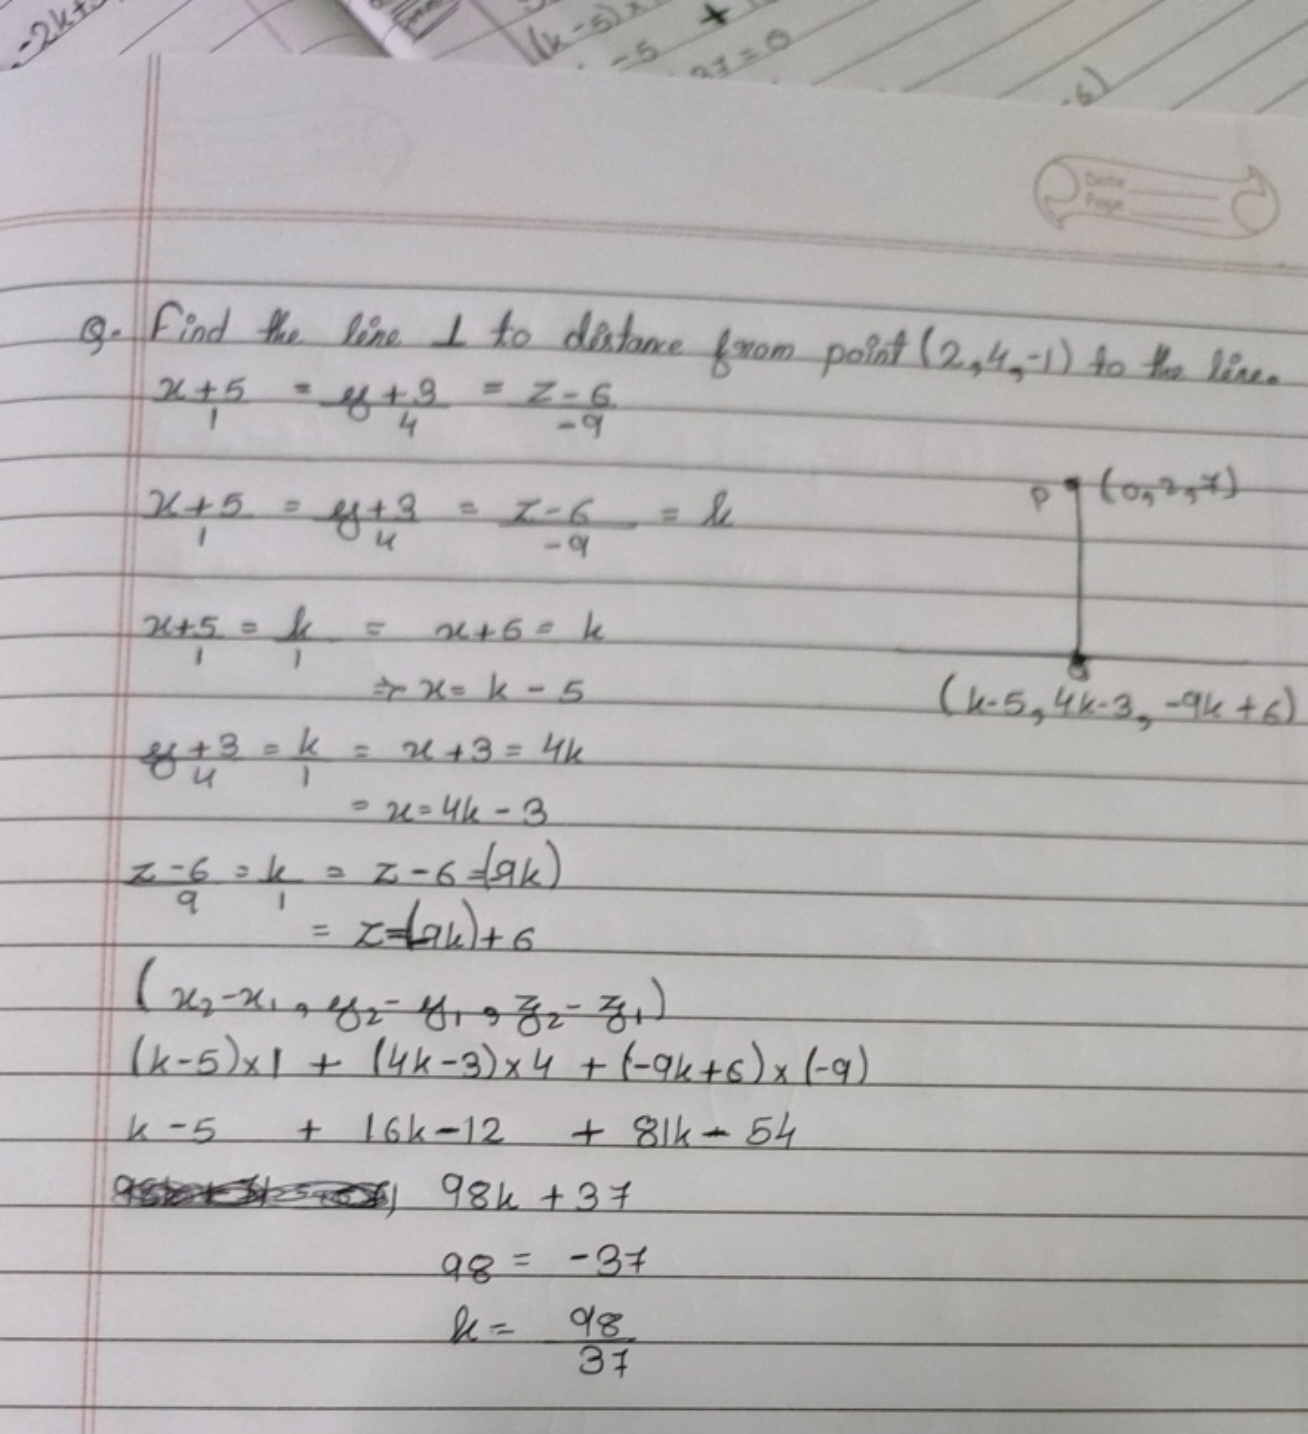 -2k+
(k-5)x
-5 +
37=0
-6)
Date
Page
Q. Find the line ⊥ to distance from point (2,4,-1) to the line.
x+5/1 = y+3/4 = z-6/-9
x+5/1 = y+3/4 = z-6/-9 = k
P (0,2,7)
x+5/1 = k/1 = x+5 = k
⇒ x = k - 5
(k-5, 4k-3, -9k+6)
y+3/4 = k/1 = x+3 = 4k
= x = 4k - 3
z-6/9 = k/1 = z-6 =(-9k)
= z=(-9k)+6
(x₂-x₁, y₂-y₁, z₂-z₁)
(k-5)x1 + (4k-3)x4 + (-9k+6)x(-9)
k-5 + 16k-12 + 81k-54
98k +37
98 = -37
k = 98/37